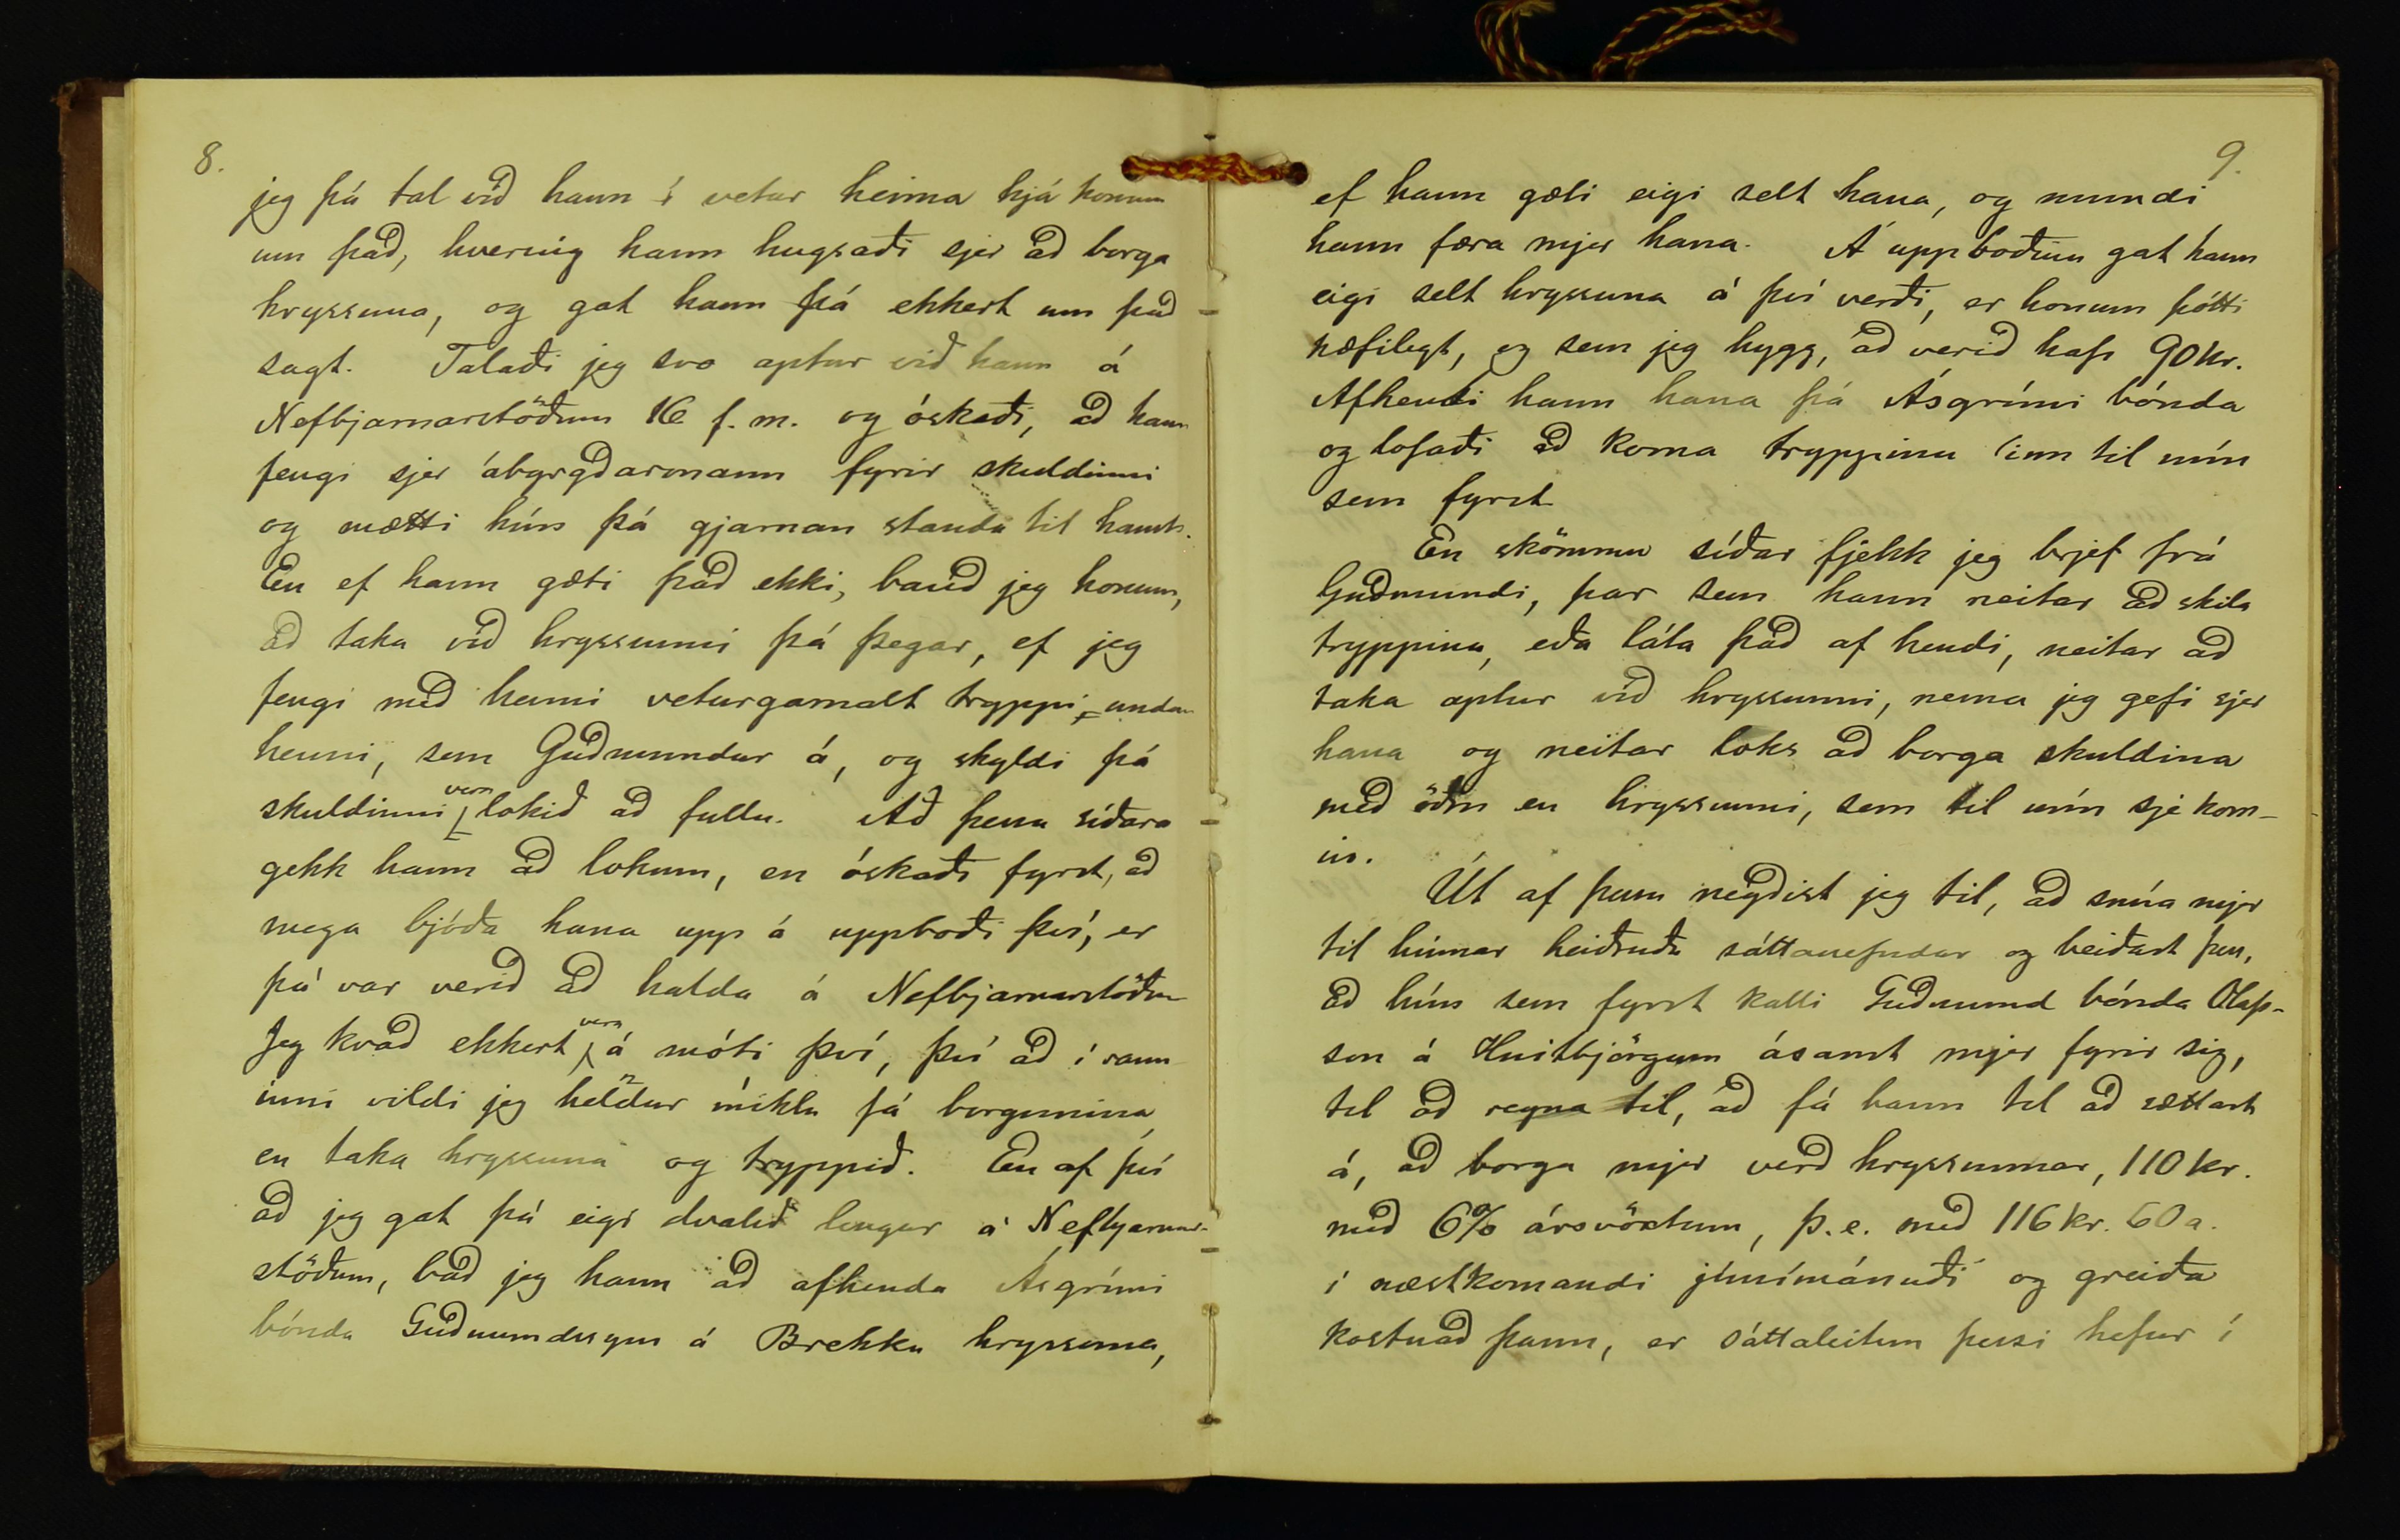 8.
jeg þá tal við hann í vetur heima hjá honum
um það, hvernig hann hugsaði sjer að borga
hryssuna, og gat hann þá ekkert um það
sagt. Talaði jeg svo aptur við hann á
Nefbjarnarstöðum 16 f. m. og óskaði, að hann
fengi sjer ábyrgðarmann fyrir skuldinni
og mætti hún þá gjarnan standa til hausts.
En ef hann gæti það ekki, bauð jeg honum,
að taka við hryssunni þá þegar, ef jeg
fengi með henni veturgamalt tryppi, undan
henni, sem Guðmundur á, og skyldi þá
skuldinni vera lokið að fullu. Að þessu síðara
gekk hann að lokum, en óskaði fyrst, að
mega bjóða hana upp á uppboði því, er
þá var verið að halda á Nefbjarnarstöðum
Jeg kvað ekkert vera á móti því, því að í raun
inni vildi jeg heldur miklu fá borgunina,
en taka hryssuna og tryppið. En af því
að jeg gat þá eigi dvalið lengur á Nefbjarnar-
stöðum, bað jeg hann að afhenda Ásgrími
bónda Guðmundssyni á Brekku hryssuna,
9.
ef hann gæti eigi selt hana, og mundi
hann færa mjer hana. Á uppboðinu gat hann
eigi selt hryssuna á því verði, er honum þótti
hæfilegt, og sem jeg hygg, að verið hafi 90 kr.
Afhenti hann hana þá Ásgrími bónda
og lofaði að koma tryppinu inn til mín
sem fyrst
En skömmu síðar fjekk jeg brjef frá
Guðmundi, þar sem hann neitar að skila
tryppinu, eða láta það af hendi, neitar að
taka aptur við hryssunni, nema jeg gefi sjer
hana og neitar loks að borga skuldina
með öðru en hryssunni, sem til mín sje kom-
in.
Út af þessu neyðist jeg til, að snúa mjer
til hinnar heiðruðu sáttanefndar og beiðast þess,
að hún sem fyrst kalli Guðmund bónda Ólafs-
son á Hnitbjörgum ásamt mjer fyrir sig,
til að reyna til, að fá hann til að sættast
á, að borga mjer verð hryssunnar, 110 kr.
með 6% ársvöxtum, þ. e. með 116 kr. 60 a.
í næstkomandi júnímánuði og greiða
kostnað þann, er sáttaleitun þessi hefur í